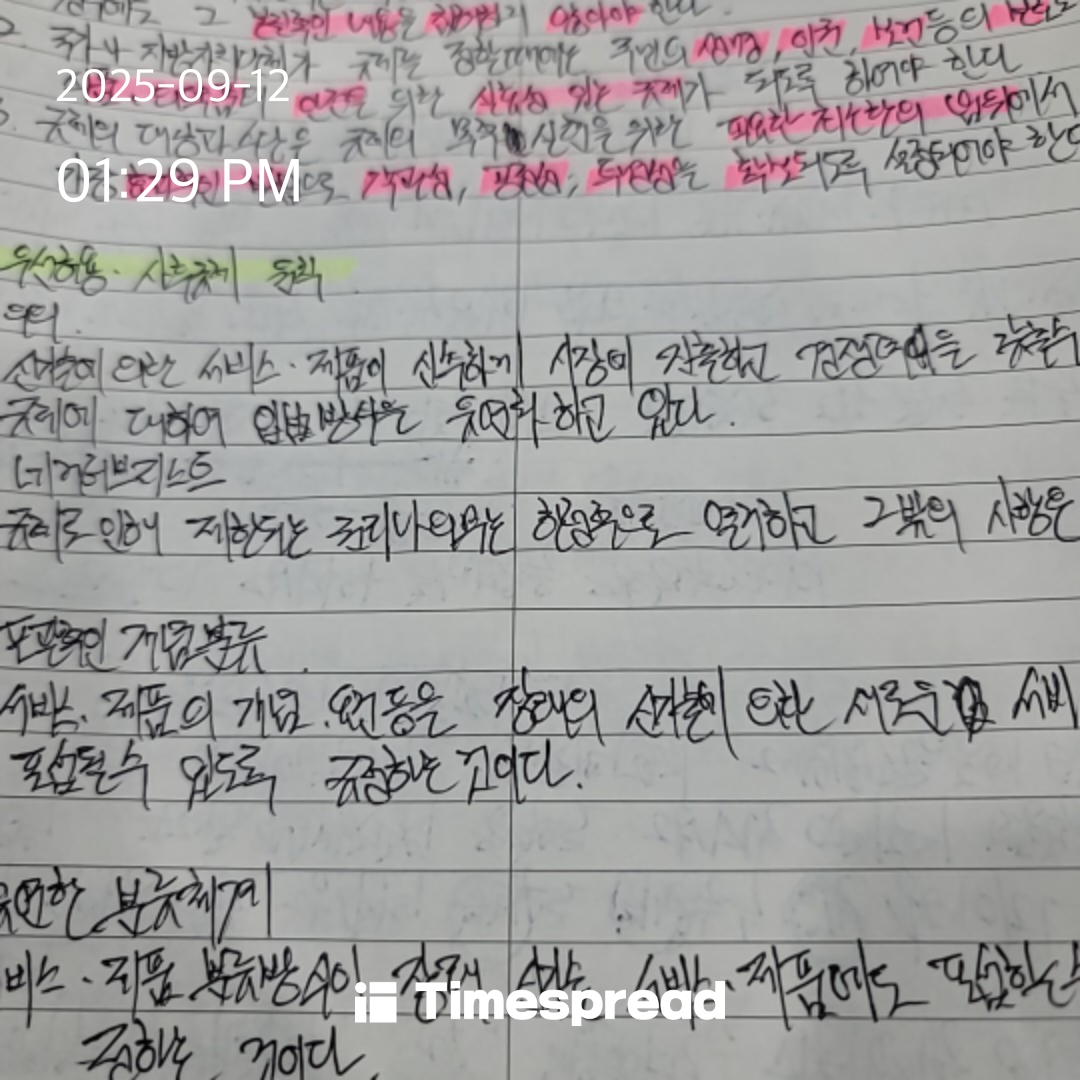 본질적 내용을 침해하지 않아야 한다.
2. 국가나 지방자치단체가 규제를 정할 때에는 국민의 생명, 인권, 보건 등의
2025-09-12
안전을 위한 실효성 있는 규제가 되도록 하여야 한다
3. 규제의 대상과 수단은 규제의 목적 실현을 위한 필요한 최소한의 범위에서
01:29 PM
객관성, 투명성을 확보되도록 설정되어야 한다
우선허용·사후규제 원칙
의의.
신기술에 의한 서비스·제품이 신속하게 시장에 진출하고
규제에 대하여 입법방식을 유연화하고 있다.
네거티브리스트
규제로 인해 제한되는 권리나 의무는 한정적으로 열거하고 그 밖의 사항은
포괄적인 개념분류
서비스·제품의 개념요건 등을 장래의 신기술에 의한 새로운 서비
포섭될 수 있도록 규정하는 것이다.
유연한 분류체계
비스·제품 분류방식이 장래 서비스·제품에도 포섭할 수
규정하는 것이다.
Timespread